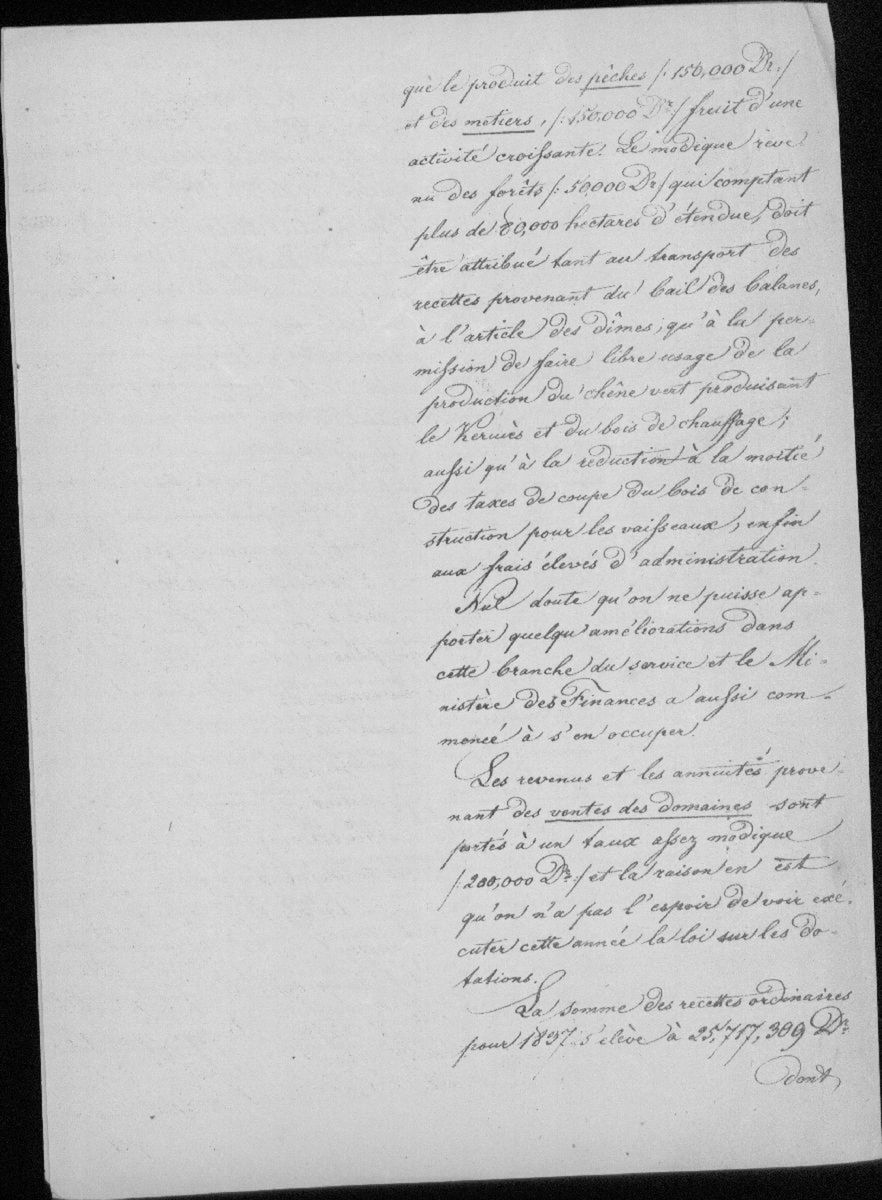 que le produit des pêches /: 150,000 Dr:/
et des métiers, /: 150,000 Dr:/ fruit d'une
activité croissante. Le modique reve-
nu des forêts /: 50,000 Dr:/ qui comptant
plus de 80,000 hectares d'étendue, doit
être attribué tant au transport des
recettes provenant du bail des balanes,
à l'article des dîmes, qu'à la per-
mission de faire libre usage de la
production du chêne vert produisant
le Kermès et du bois de chauffage;
aussi qu'à la réduction à la moitié
des taxes de coupe du bois de con-
struction pour les vaisseaux, enfin
aux frais élevés d'administration.
Nul doute qu'on ne puisse ap-
porter quelqu'améliorations dans
cette branche du service et le Mi-
nistère des Finances a aussi com-
mencé à s'en occuper.
Les revenus et les annuités prove-
nant des ventes des domaines sont
portés à un taux assez modique
/: 200,000 Dr:/ et la raison en est
qu'on n'a pas l'espoir de voir exé-
cuter cette année la loi sur les do-
tations.
La somme des recettes ordinaires
pour 1837 s'élève à 25,717,309 Dr:
dont